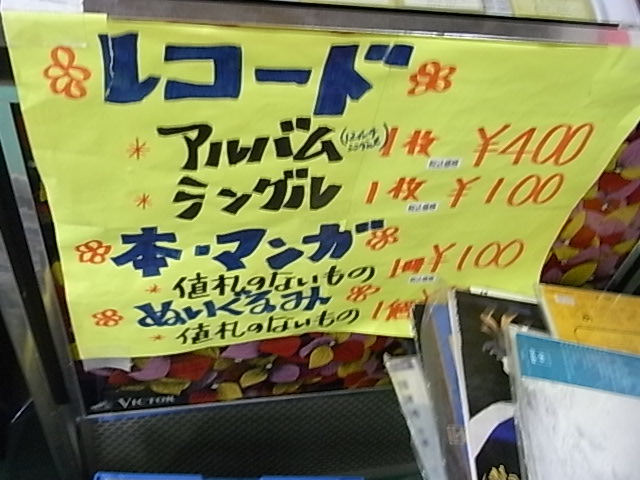 レコード
アルバム(12インチシングル含む) 1枚 税込価格 ¥400
シングル 1枚 税込価格 ¥100
本・マンガ
値札のないもの 1冊 税込価格 ¥100
ぬいぐるみ
値札のないもの 1個
VICTOR